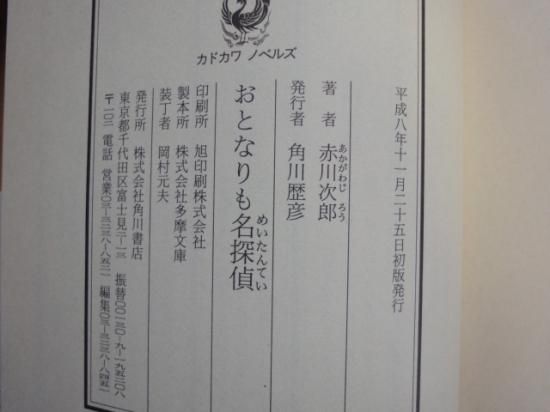 カドカワ ノベルズ
平成八年十一月二十五日初版発行
著者 赤川次郎
あかがわじろう
発行者 角川歴彦
おとなりも名探偵
めいたんてい
印刷所 旭印刷株式会社
製本所 株式会社多摩文庫
装丁者 岡村元夫
発行所 株式会社角川書店
東京都千代田区富士見二-一三 振替〇〇一三〇-九-一九五二〇八
〒一〇二 電話 営業〇三-三二三八-八五二一 編集〇三-三二三八-八四五一